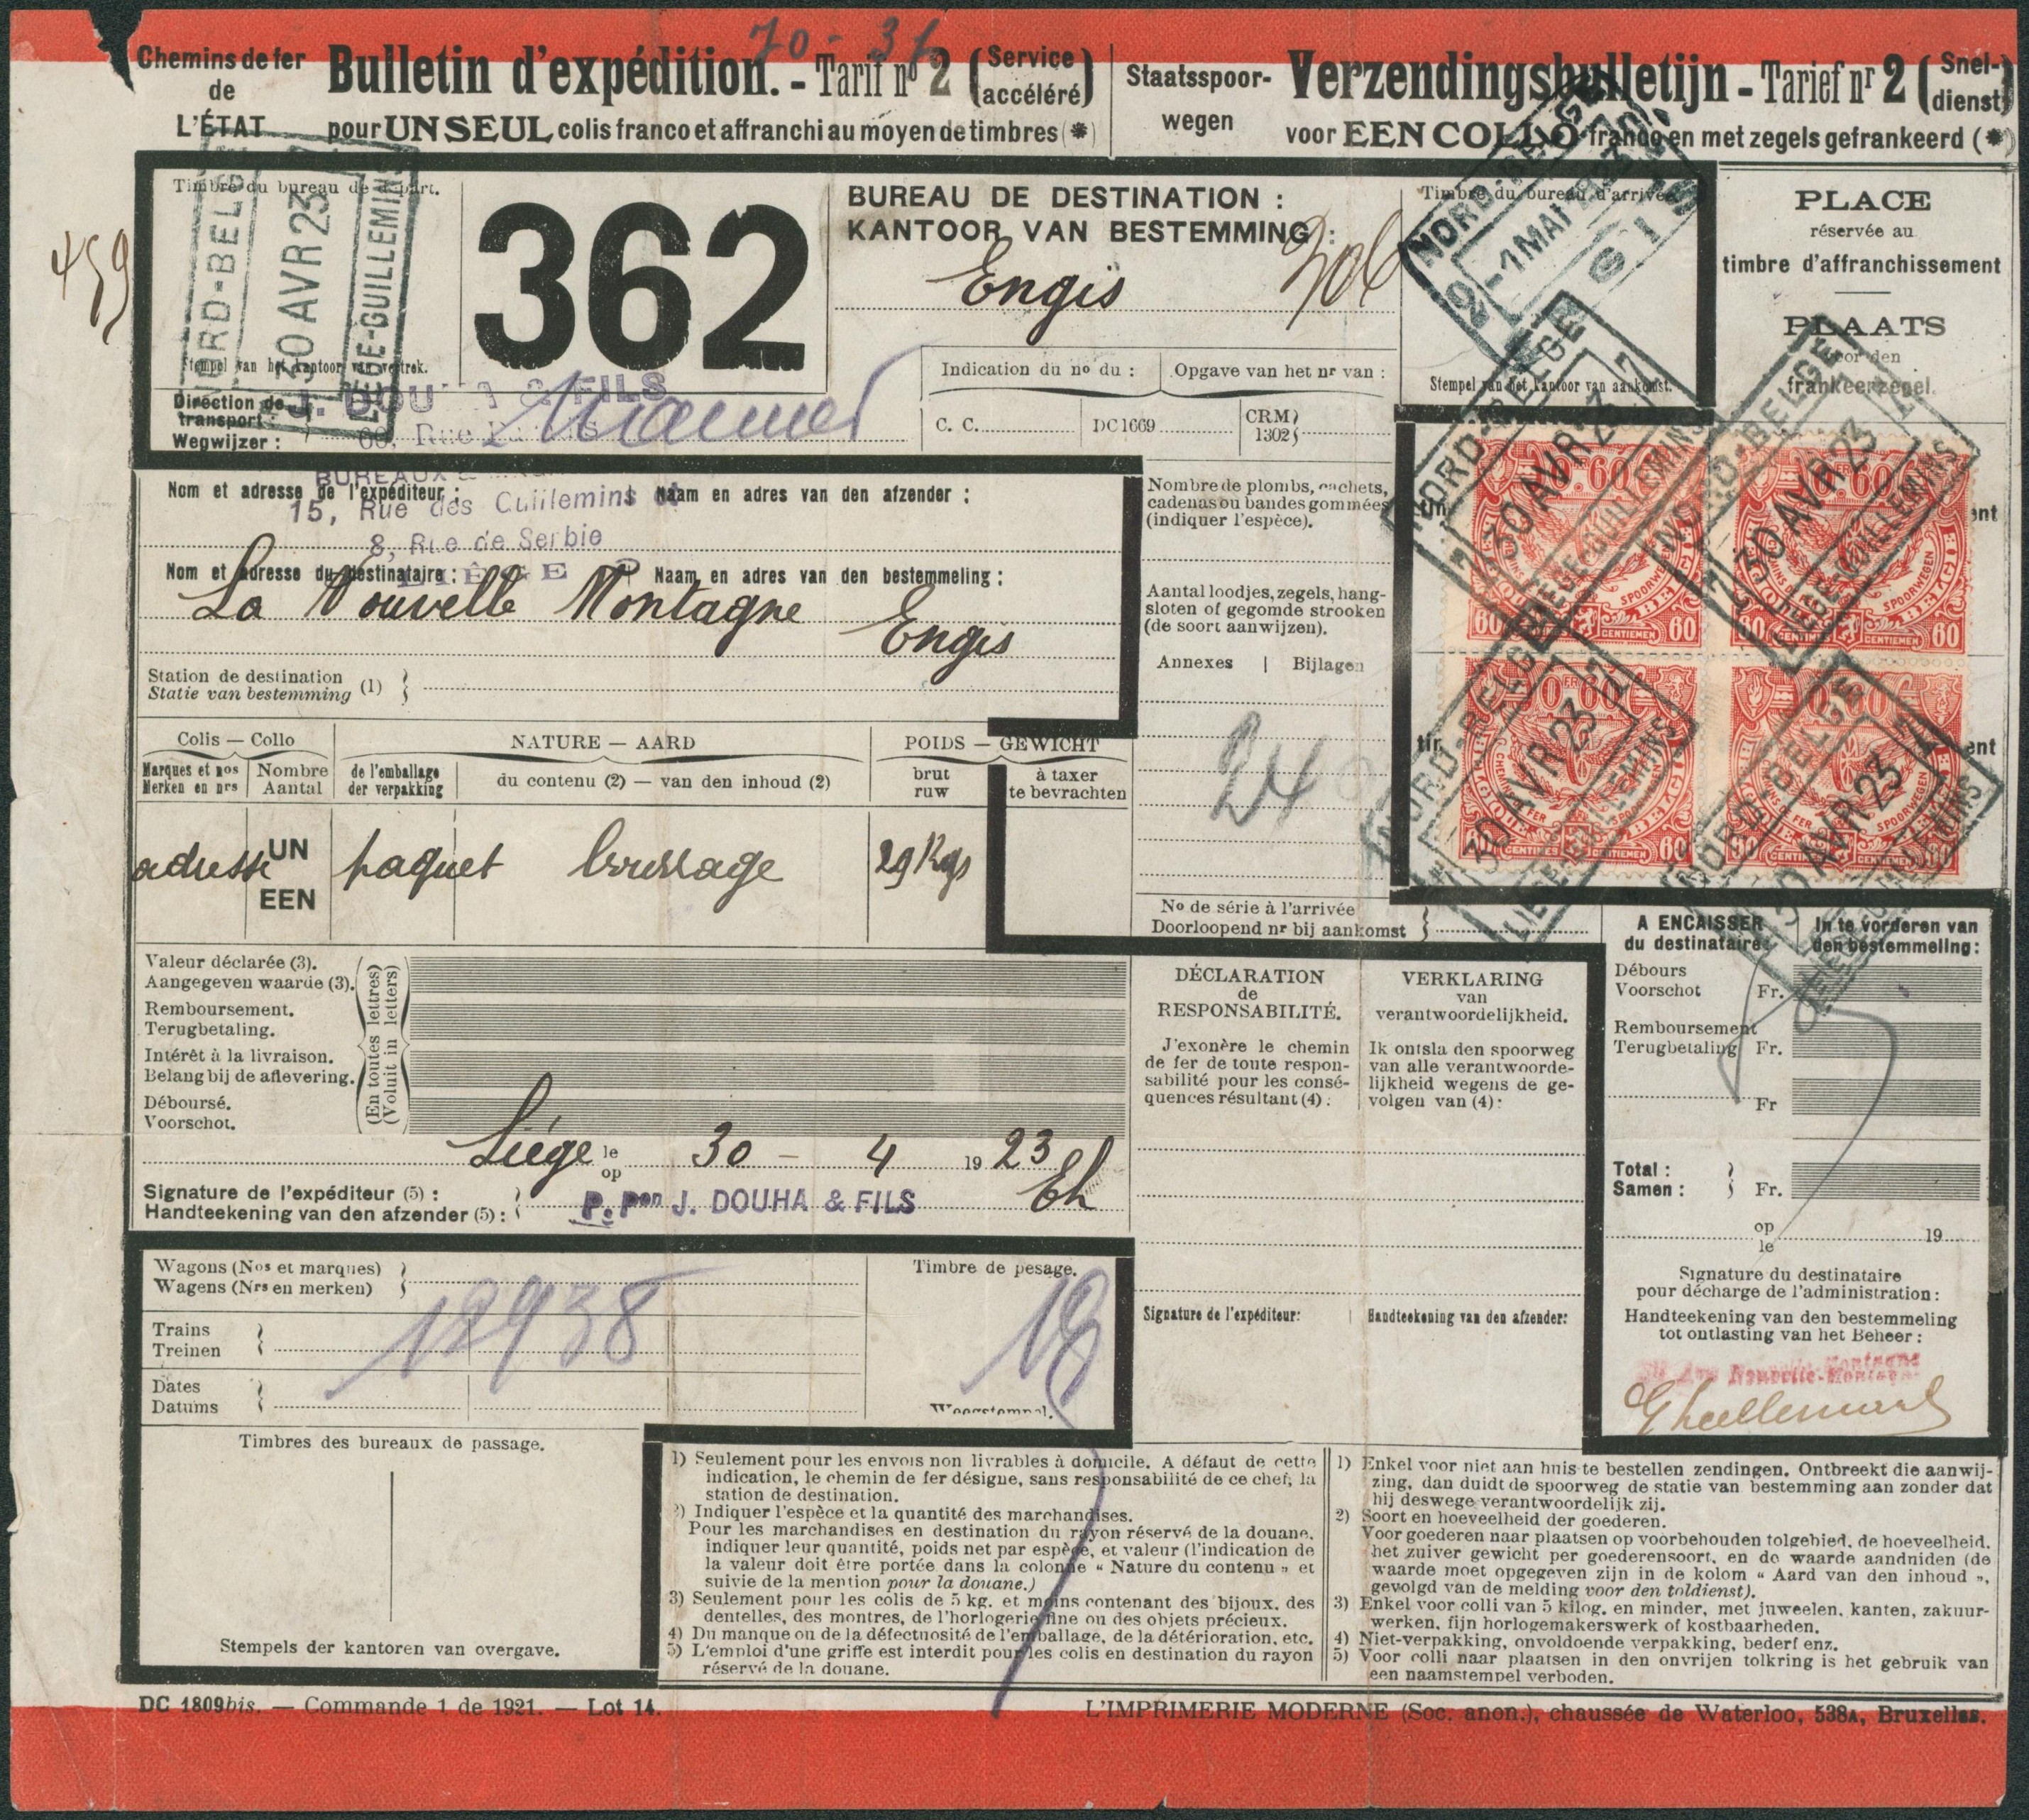 70 - 31
Chemins de fer
de
L'ÉTAT
Bulletin d'expédition. - Tarif nº 2 (Service accéléré)
pour UN SEUL colis franco et affranchi au moyen de timbres (*)
Staatsspoor-
wegen
Verzendingsbulletijn - Tarief nr 2 (Snel-dienst)
voor EEN COLLO franco en met zegels gefrankeerd (*)
459
Timbre du bureau de départ.
NORD-BELGE
30 AVR 23
LIEGE-GUILLEMINS
Stempel van het kantoor van vertrek.
362
BUREAU DE DESTINATION :
KANTOOR VAN BESTEMMING :
Engis
Timbre du bureau d'arrivée
NORD-BELGE
2 - 1 MAI
Stempel van het kantoor van aankomst.
PLACE
réservée au
timbre d'affranchissement
PLAATS
voor den
frankeerzegel.
Direction de
transport :
Wegwijzer :
Indication du nº du : | Opgave van het nr van :
C. C. DC 1669 CRM 1302
J. DOUHA & FILS
BUREAUX &
15, Rue des Guillemins
8, Rue de Serbie
LIÈGE
Nom et adresse de l'expéditeur : Naam en adres van den afzender :
Nom et adresse du destinataire : Naam en adres van den bestemmeling :
La Nouvelle Montagne
Engis
Station de destination
Statie van bestemming (1)
Nombre de plombs, cachets,
cadenas ou bandes gommées
(indiquer l'espèce).
Aantal loodjes, zegels, hang-
sloten of gegomde strooken
(de soort aanwijzen).
Annexes | Bijlagen
24
0 FR 60
NORD-BELGE
30 AVR 23
LIEGE-GUILLEMINS
SPOORWEGEN
60 CENTIEMEN 60
0.60
NORD-BELGE
30 AVR 23
LIEGE-GUILLEMINS
SPOORWEGEN
60 CENTIEMEN 60
0 FR 60
NORD-BELGE
30 AVR 23
LIEGE-GUILLEMINS
CENTIEMEN 60
0 FR 60
NORD-BELGE
30 AVR 23
LIEGE-GUILLEMINS
SPOORWEGEN
CENTIEMEN 60
Colis — Collo
NATURE — AARD
POIDS — GEWICHT
Marques et nos
Merken en nrs
Nombre
Aantal
de l'emballage
der verpakking
du contenu (2) — van den inhoud (2)
brut
ruw
à taxer
te bevrachten
adresse UN
EEN
paquet
29 Kgs
Nº de série à l'arrivée
Doorloopend nr bij aankomst
Valeur déclarée (3).
Aangegeven waarde (3).
Remboursement.
Terugbetaling.
Intérêt à la livraison.
Belang bij de aflevering.
Déboursé.
Voorschot.
(En toutes lettres)
(Voluit in letters)
DÉCLARATION
de
RESPONSABILITÉ.
J'exonère le chemin
de fer de toute respon-
sabilité pour les consé-
quences résultant (4) :
VERKLARING
van
verantwoordelijkheid.
Ik ontsla den spoorweg
van alle verantwoorde-
lijkheid wegens de ge-
volgen van (4) :
A ENCAISSER
du destinataire :
In te vorderen van
den bestemmeling :
Débours
Voorschot Fr.
Remboursement
Terugbetaling Fr.
Fr
Total :
Samen : Fr.
op
le 19
Liége le
op 30 - 4 1923
Signature de l'expéditeur (5) :
Handteekening van den afzender (5) :
P. Pon J. DOUHA & FILS
Signature du destinataire
pour décharge de l'administration :
Handteekening van den bestemmeling
tot ontlasting van het Beheer :
Nouvelle-Montagne
Wagons (Nos et marques)
Wagens (Nrs en merken)
Trains
Treinen
Dates
Datums
18938
Timbre de pesage.
18
Weegstempel.
Signature de l'expéditeur: | Handteekening van den afzender:
Timbres des bureaux de passage.
Stempels der kantoren van overgave.
1) Seulement pour les envois non livrables à domicile. A défaut de cette
indication, le chemin de fer désigne, sans responsabilité de ce chef, la
station de destination.
2) Indiquer l'espèce et la quantité des marchandises.
Pour les marchandises en destination du rayon réservé de la douane,
indiquer leur quantité, poids net par espèce, et valeur (l'indication de
la valeur doit être portée dans la colonne « Nature du contenu » et
suivie de la mention pour la douane.)
3) Seulement pour les colis de 5 kg. et moins contenant des bijoux, des
dentelles, des montres, de l'horlogerie fine ou des objets précieux.
4) Du manque ou de la défectuosité de l'emballage, de la détérioration, etc.
5) L'emploi d'une griffe est interdit pour les colis en destination du rayon
réservé de la douane.
1) Enkel voor niet aan huis te bestellen zendingen. Ontbreekt die aanwij-
zing, dan duidt de spoorweg de statie van bestemming aan zonder dat
hij deswege verantwoordelijk zij.
2) Soort en hoeveelheid der goederen.
Voor goederen naar plaatsen op voorbehouden tolgebied, de hoeveelheid,
het zuiver gewicht per goederensoort, en de waarde aandniden (de
waarde moet opgegeven zijn in de kolom « Aard van den inhoud »,
gevolgd van de melding voor den toldienst).
3) Enkel voor colli van 5 kilog. en minder, met juweelen, kanten, zakuur-
werken, fijn horlogemakerswerk of kostbaarheden.
4) Niet-verpakking, onvoldoende verpakking, bederf enz.
5) Voor colli naar plaatsen in den onvrijen tolkring is het gebruik van
een naamstempel verboden.
DC 1809bis. — Commande 1 de 1921. — Lot 14.
L'IMPRIMERIE MODERNE (Soc. anon.), chaussée de Waterloo, 538A, Bruxelles.